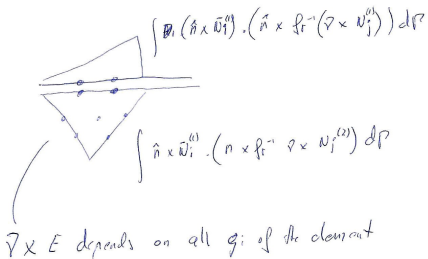 ∫ (n̂ × N̄i⁽¹⁾) · (n̂ × fr⁻¹ (∇ × Nj⁽¹⁾)) dΓ
∫ n̂ × N̄i⁽¹⁾ · (n × fr⁻¹ ∇ × Nj⁽²⁾) dΓ
∇ × E depends on all gi of the element